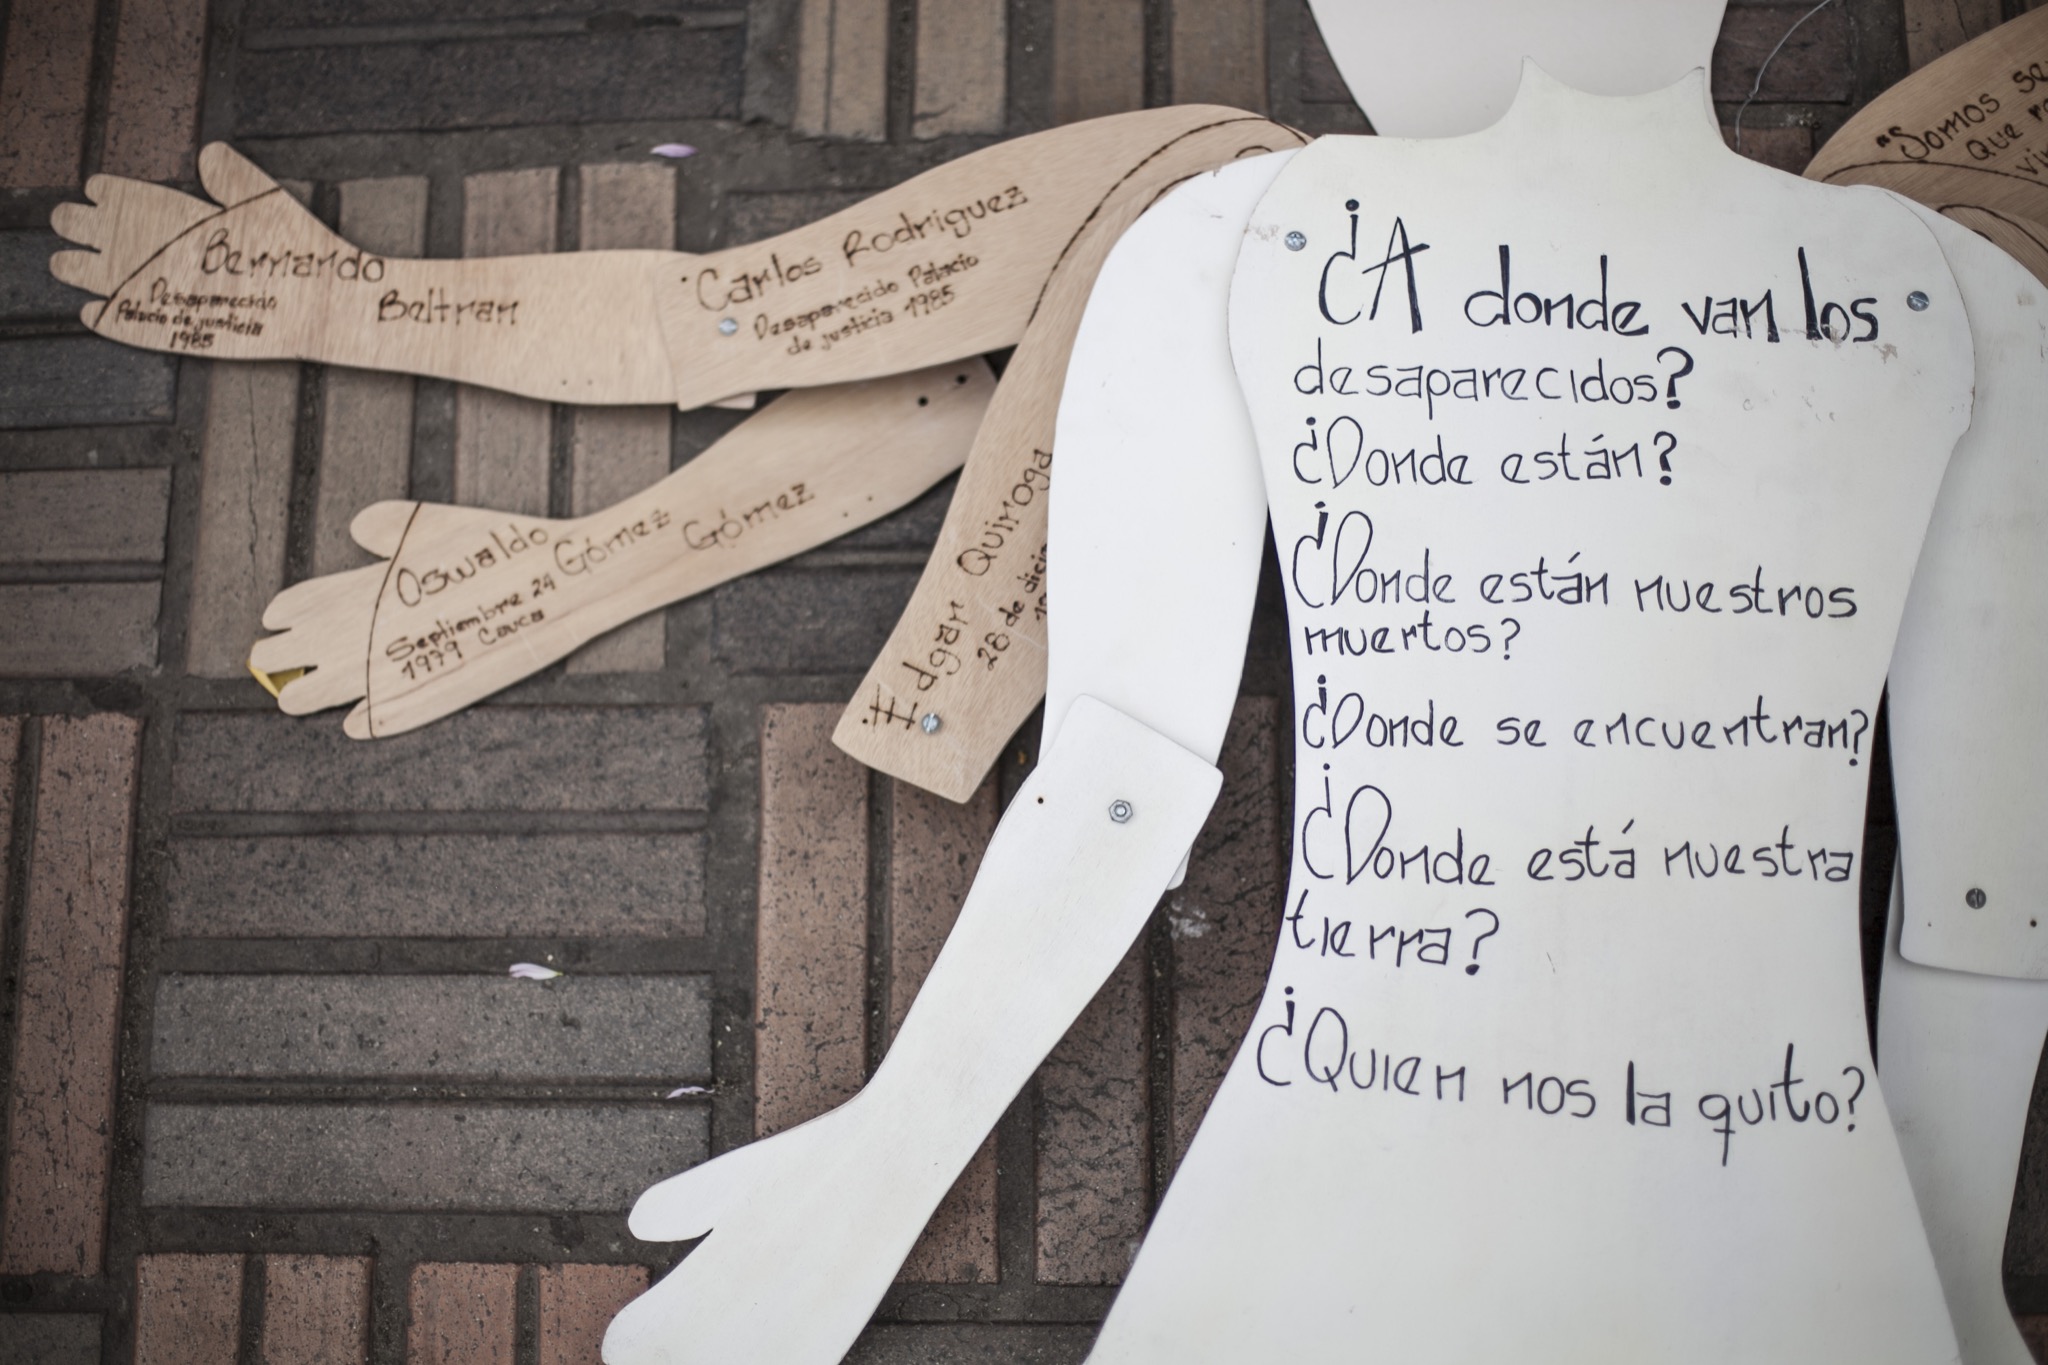 Bernardo
Beltran
Desaparecido
Palacio de justicia
1985
Carlos Rodriguez
Desaparecido Palacio
de justicia 1985
Oswaldo Gómez Gómez
Septiembre 24
1979 Cauca
Edgar Quiroga
28 de
¿A donde van los
desaparecidos?
¿Donde están?
¿Donde están nuestros
muertos?
¿Donde se encuentran?
¿Donde está nuestra
tierra?
¿Quien nos la quito?
"Somos
que